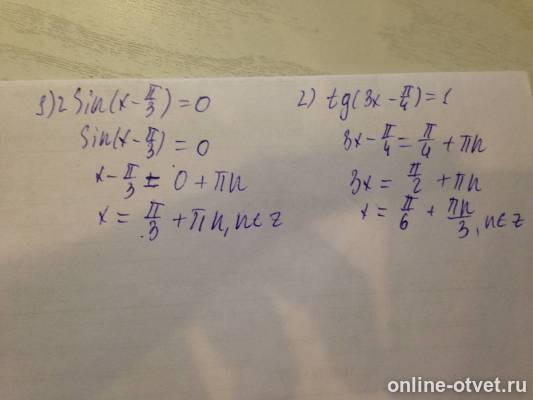 1) 2 sin(x - π/3) = 0
sin(x - π/3) = 0
x - π/3 = 0 + πn
x = π/3 + πn, n∈z
2) tg(3x - π/4) = 1
3x - π/4 = π/4 + πn
3x = π/2 + πn
x = π/6 + πn/3, n∈z
online-otvet.ru